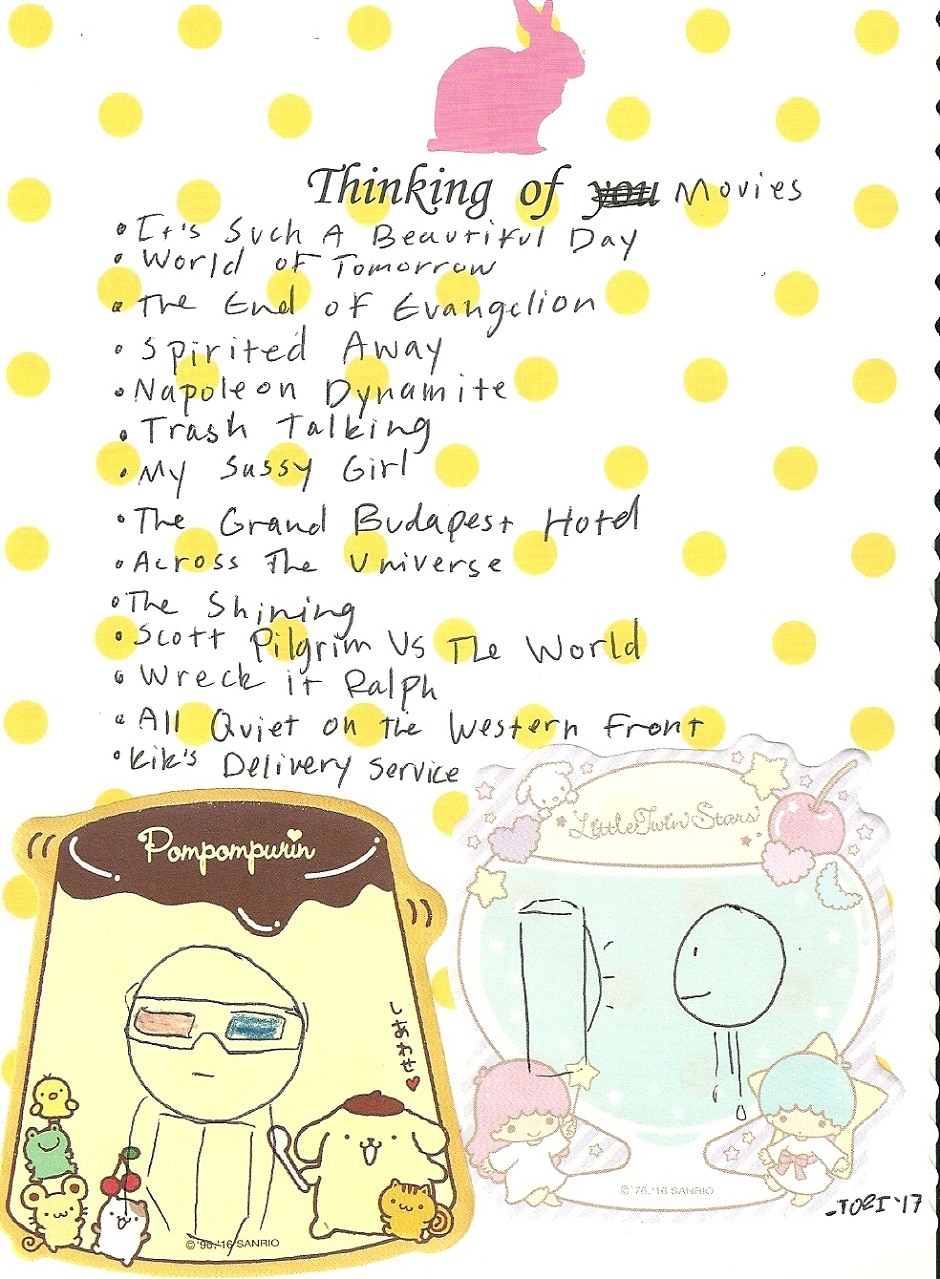 Thinking of you Movies
• It's Such A Beautiful Day
• World of Tomorrow
• The End of Evangelion
• Spirited Away
• Napoleon Dynamite
• Trash Talking
• My Sassy Girl
• The Grand Budapest Hotel
• Across The Universe
• The Shining
• Scott Pilgrim Vs The World
• Wreck it Ralph
• All Quiet on the Western Front
• Kiki's Delivery Service
Pompompurin
しあわせ
© '96, '16 SANRIO
Little Twin Stars
© '76, '16 SANRIO
-TORI '17